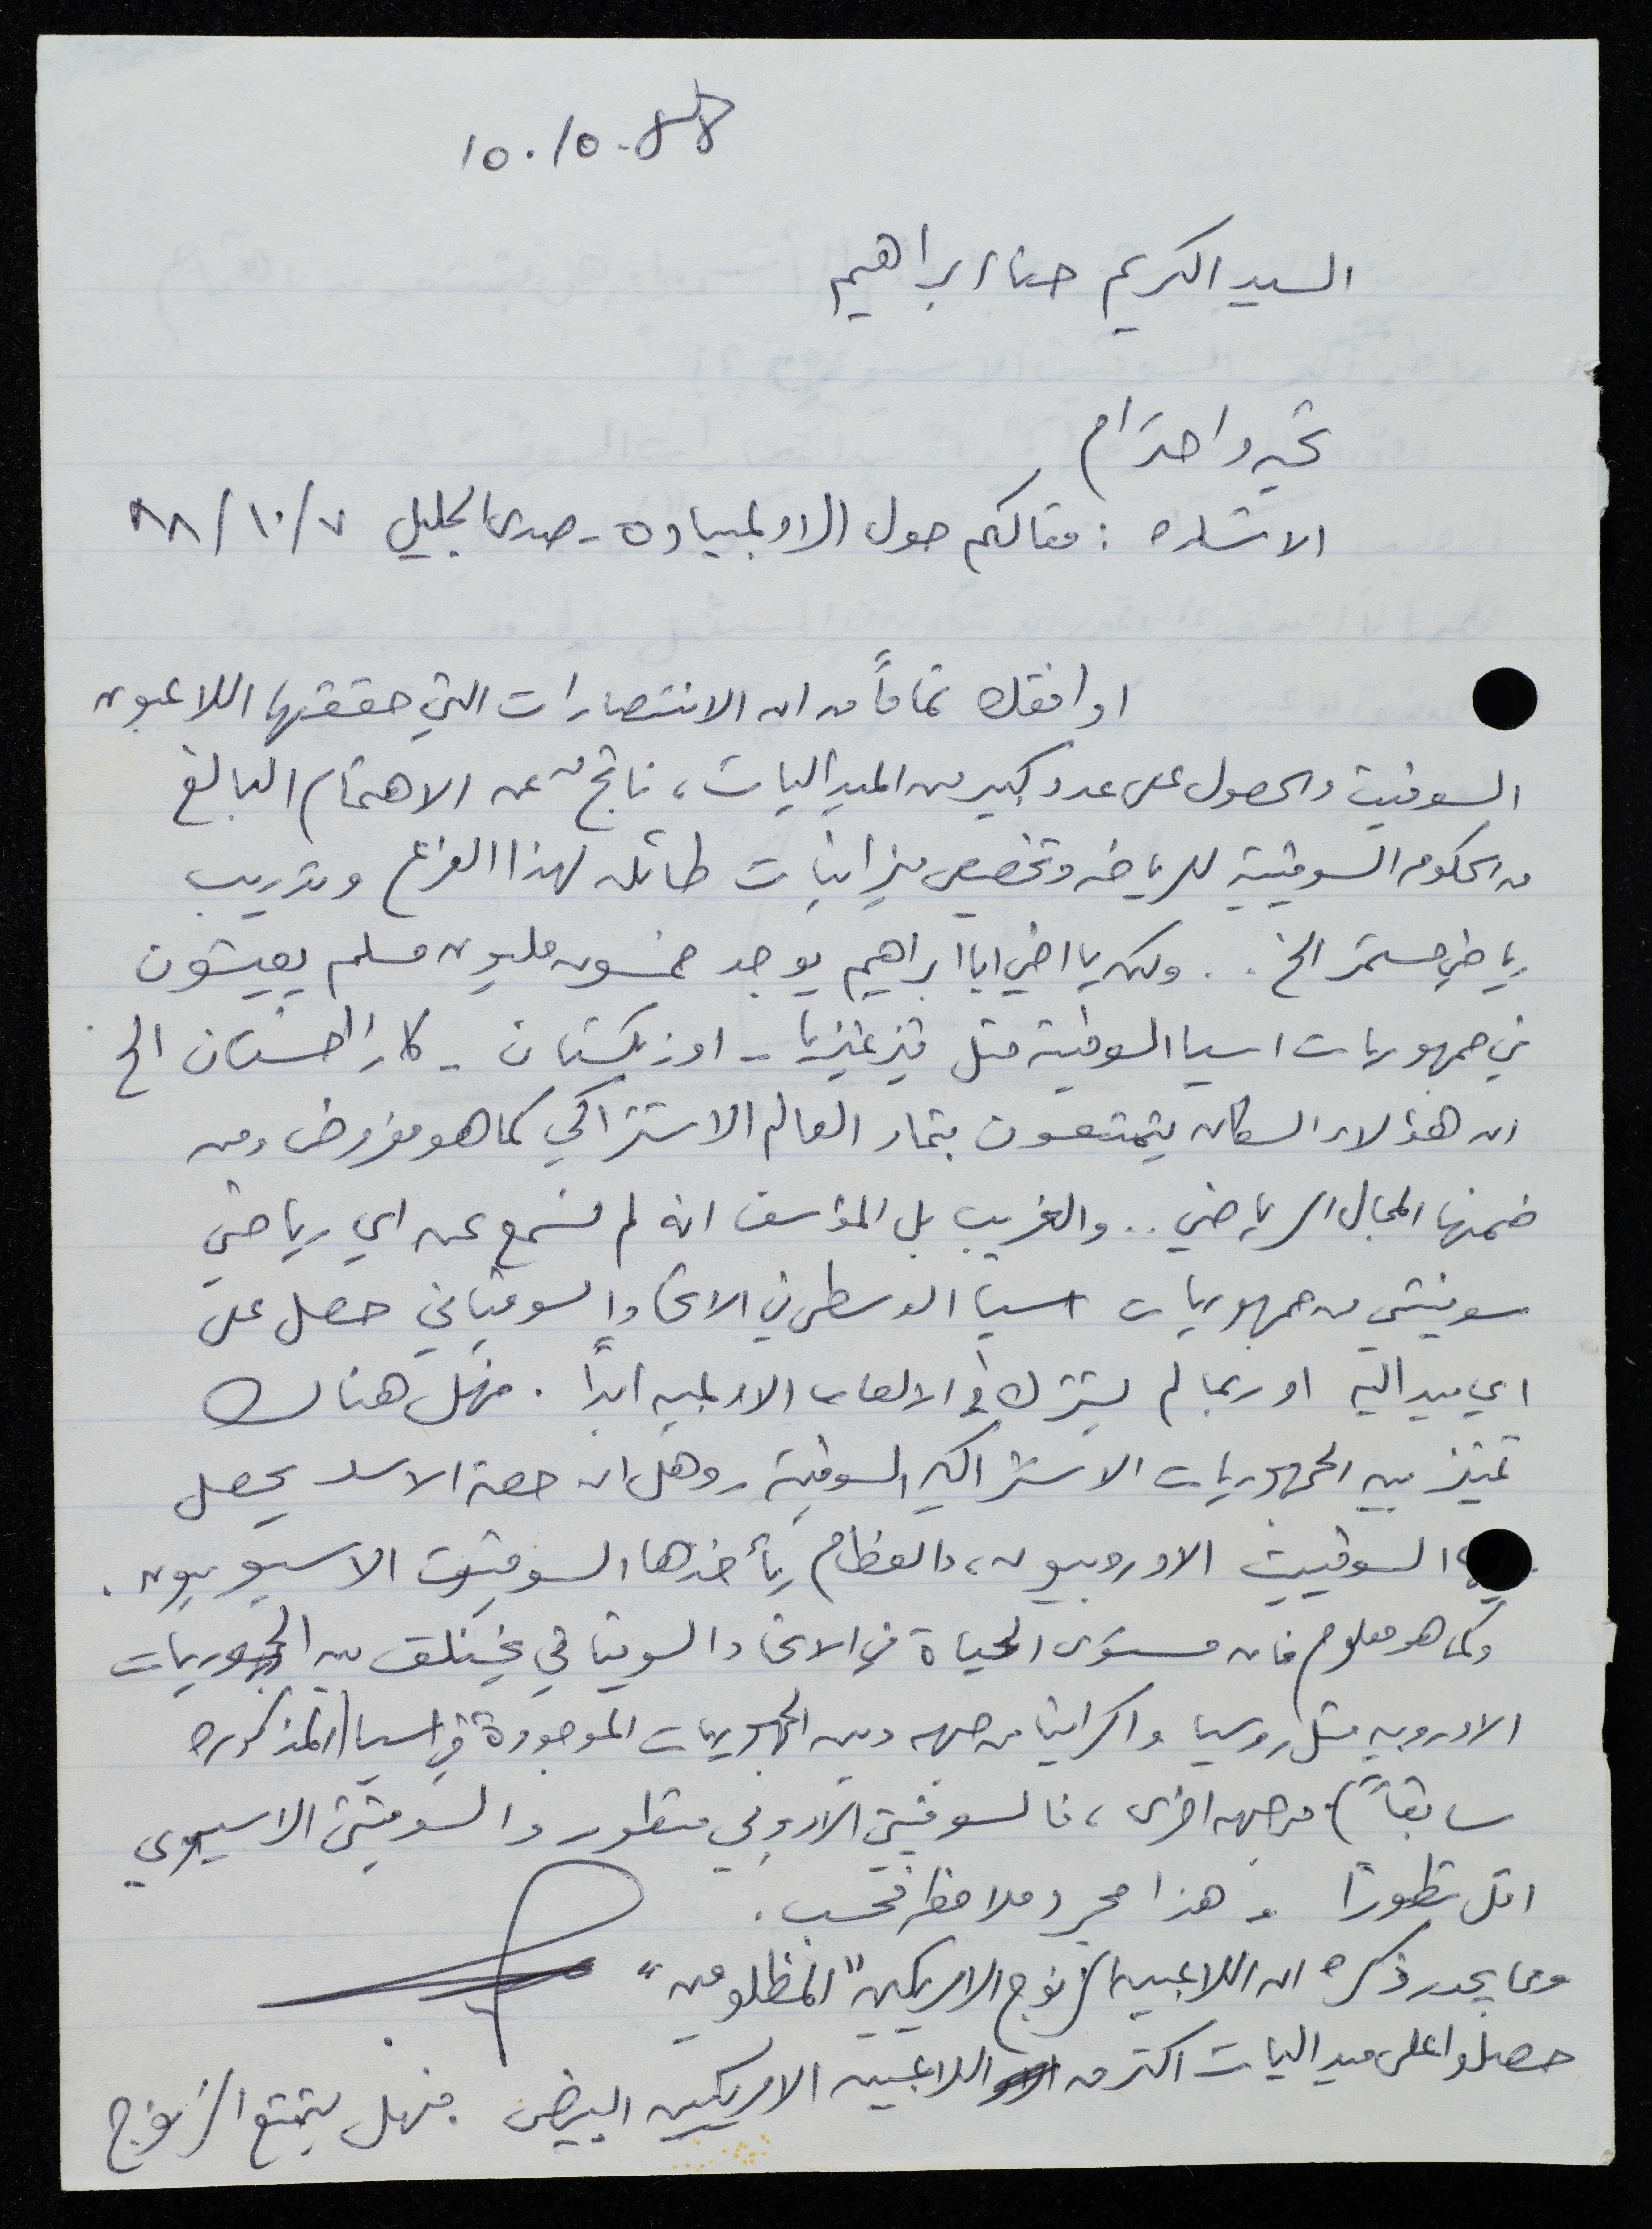 10.10.88
السيد الكريم حنا ابراهيم
تحيه واحترام
الاشاره : مقالكم حول الاولمبياده - صدى الجليل ٧/١٠/٨٨
اوافقك تماماً من ان الانتصارات التي حققها اللاعبون
السوفيت والحصول على عدد كبير من الميداليات، ناتج عن الاهتمام البالغ
من الحكومه السوفيتية للرياضه وتخصيص ميزانيات طائله لهذا الفرع وتدريب
رياضي مستمر الخ . . ولكن يا اخي ابا ابراهيم يوجد خمسون مليون مسلم يعيشون
في جمهوريات اسيا السوفيتية مثل قيرغيزيا - اوزبكستان - كازاخستان الخ .
ان هؤلاء السكان يتمتعون بثمار العالم الاشتراكي كما هو مفروض ومن
ضمنها المجال الرياضي . . والغريب بل المؤسف انه لم نسمع عن اي رياضي
سوفيتي من جمهوريات اسيا الوسطى في الاتحاد السوفياتي حصل على
اي ميدالية او ربما لم يشترك في الالعاب الاولمبيه ابداً . فهل هناك
تمييز بين الجمهوريات الاشتراكيه السوفيتية ، وهل ان حصة الاسد يحصل
السوفييت الاوروبيون، والعظام يأخذها السوفيت الاسيويون .
وكما هو معلوم فان مستوى الحياة في الاتحاد السوفياتي يختلف بين الجمهوريات
الاوروبيه مثل روسيا واكراينا من جهه وبين الجمهوريات الموجودة في اسيا (المذكوره
سابقاً) من جهه اخرى، فالسوفيتي الاوروبي متطور والسوفيتي الاسيوي
اقل تطوراً . هذا مجرد ملاحظه فحسب .
ومما يجدر ذكره ان اللاعبين الزنوج الامريكيين "المظلومين"
حصلوا على ميداليات اكثر من اللاعبين الامريكيين البيض . فهل يتمتع الزنوج